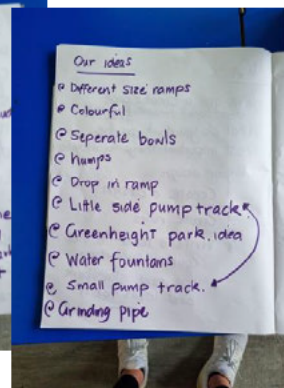 Our ideas
Different size ramps
Colourful
Seperate bowls
humps
Drop in ramp
Little side pump track.
Greenheight park. idea
Water fountans
Small pump track.
Grinding pipe